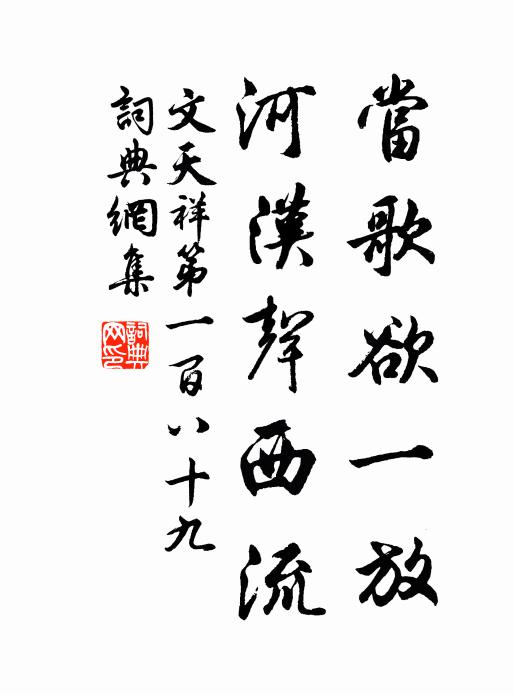 當歌欲一放
河漢聲西流
文天祥第一百八十九
詞典網集
詞典網印